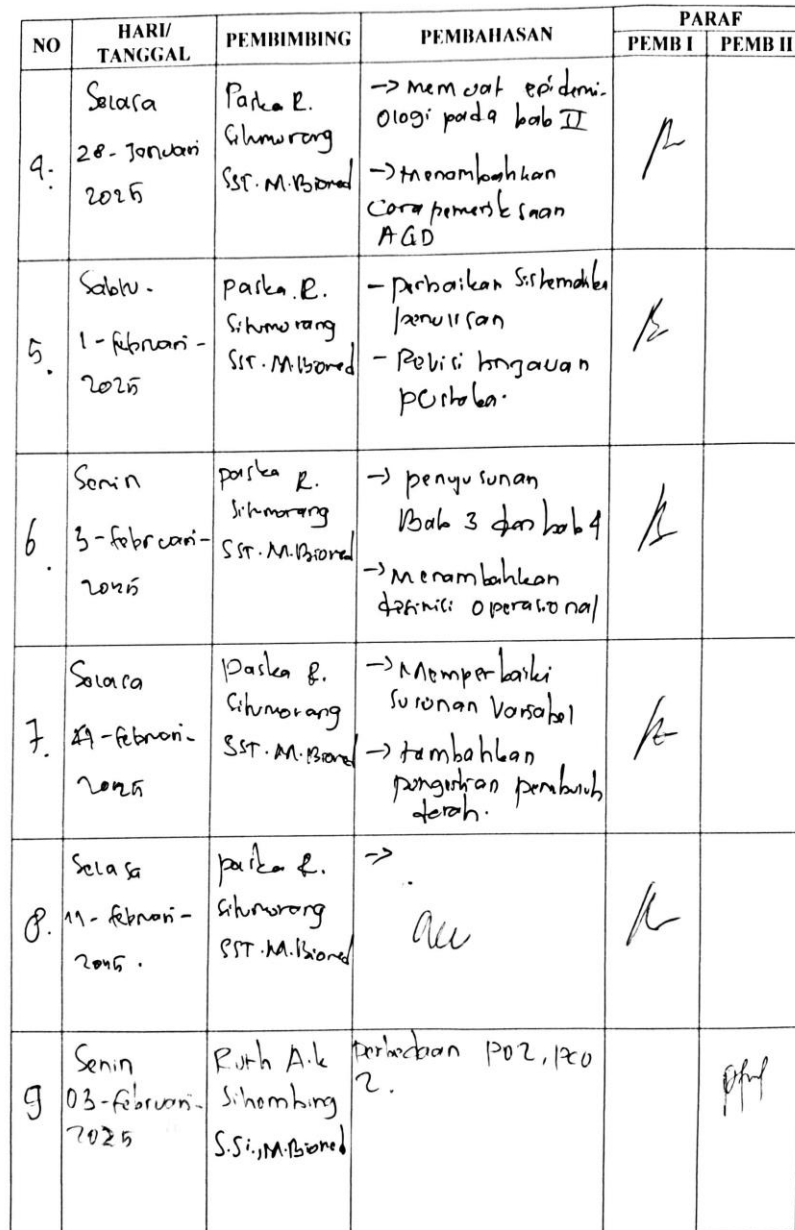 NO HARI/ TANGGAL PEMBIMBING PEMBAHASAN PARAF
PEMB I PEMB II
4.
Selasa
28 - Januari
2025
Paska R.
Situmorang
SST. M.Biomed
-> memuat epidemi-
ologi pada bab II
-> Menambahkan
Cara pemeriksaan
AGD
5.
Sabtu.
1 - februari -
2025
paska. R.
Situmorang
SST. M.Biomed
- perbaikan Sistematika
penulisan
- Revisi tinjauan
pustaka.
6.
Senin
3 - februari -
2025
paska R.
Situmorang
SST. M.Biomed
-> penyusunan
Bab 3 dan bab 4
-> Menambahkan
definisi operasional
7.
Selasa
februari -
2025
Paska R.
Situmorang
SST. M.Biomed
-> Memperbaiki
susunan Variabel
-> tambahkan
pengertian pembuluh
darah.
8.
Selasa
11 - februari -
2025.
paska R.
Situmorang
SST. M.Biomed
->
acc
9
Senin
03 - februari -
2025
Ruth A.k
Sihombing
S.Si., M.Biomed
perbedaan PO2, PCO
2.